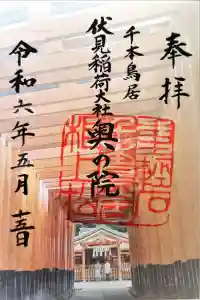 奉拝
千本鳥居
伏見稲荷大社
奥の院
令和六年五月十一日